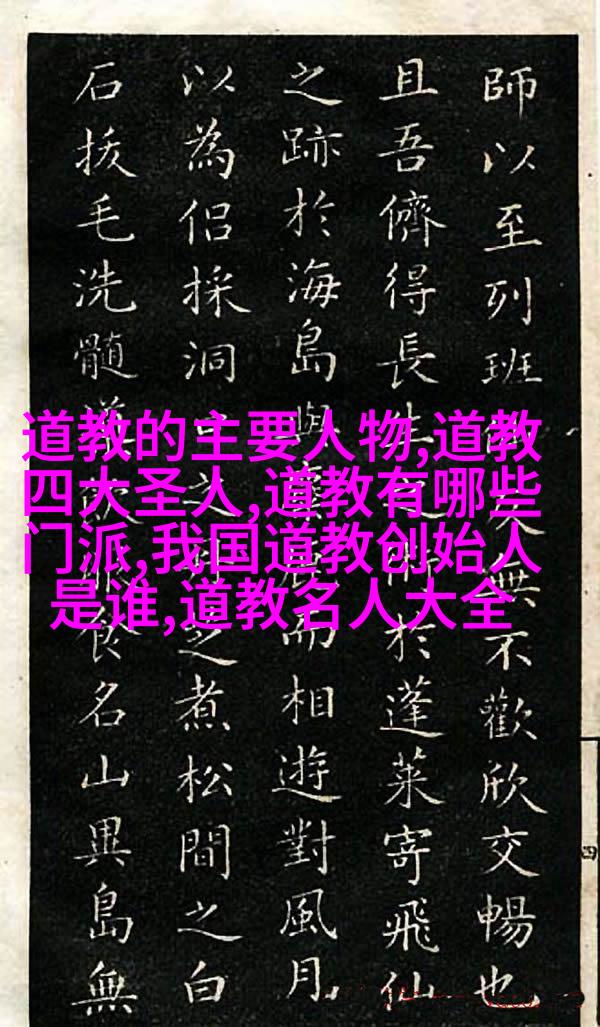 師以至列班無不歡欣交暢也
且吾儕得長生於蓬萊寄飛仙
之跡於海島與而相遊對風月
以為侶採洞之煮松間之白
石拔毛洗髓食名山異島無
道教的主要人物,道教
四大圣人,道教有哪些
门派,我国道教创始人
是谁,道教名人大全